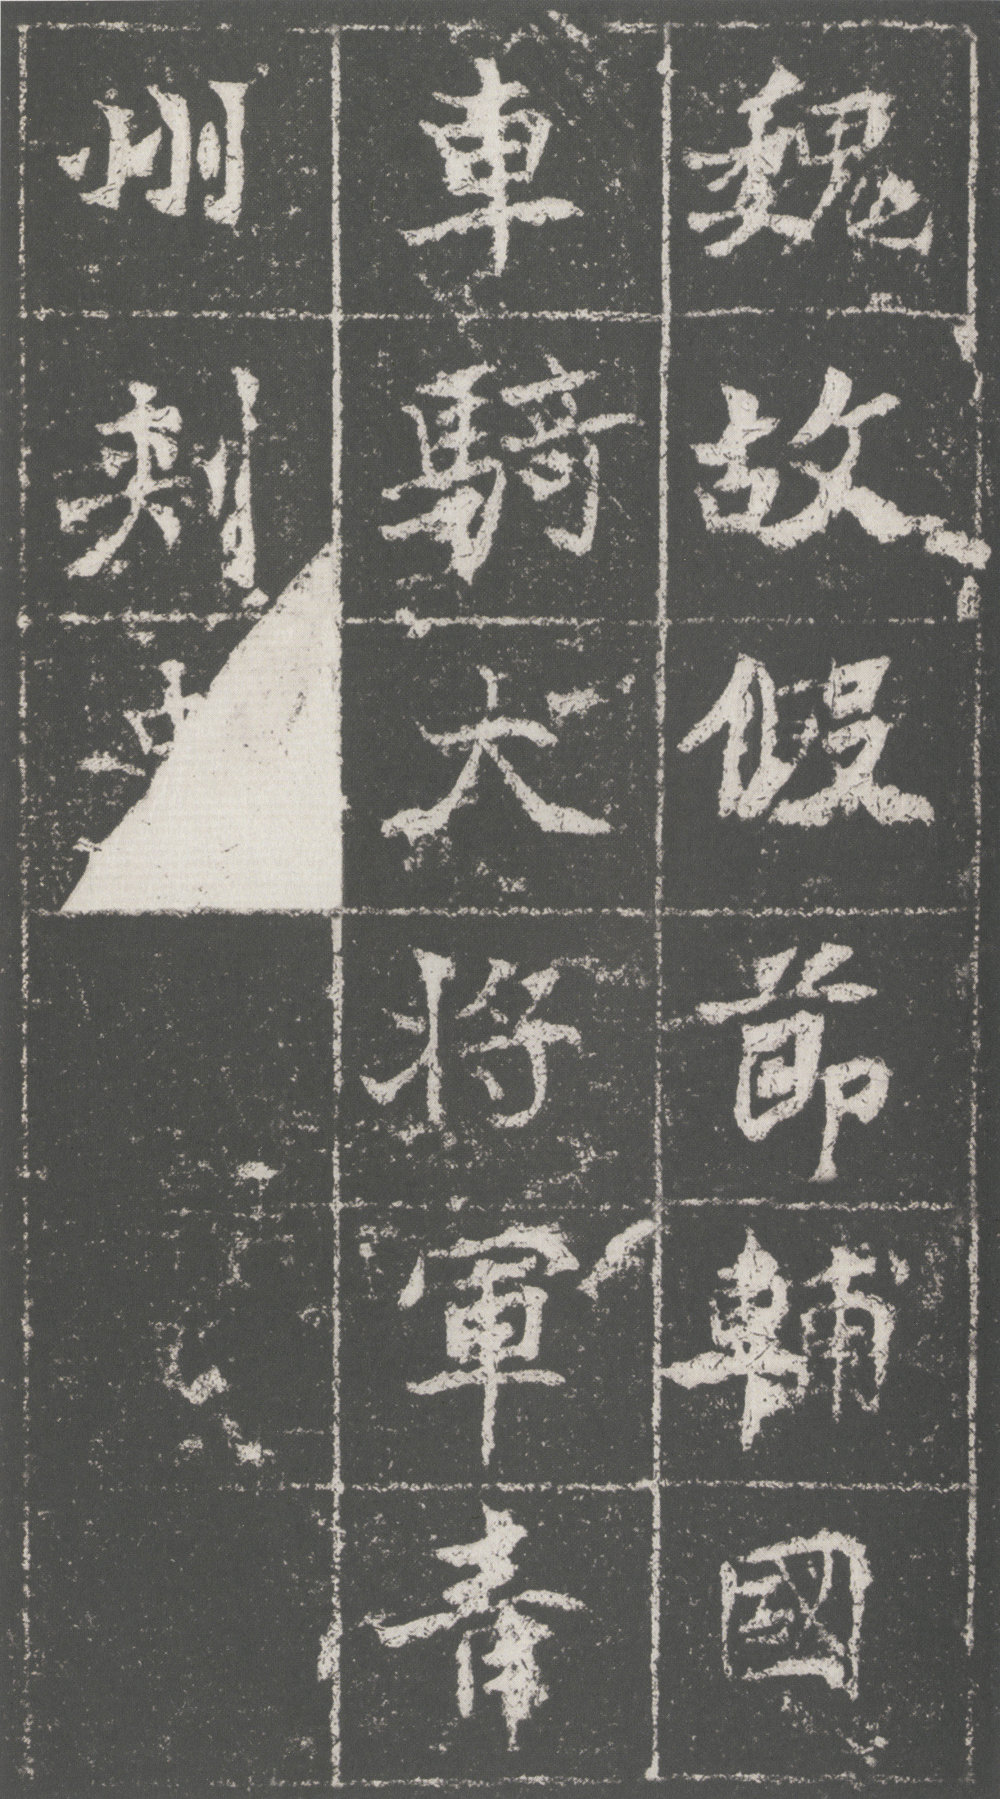 魏故假節輔國
車騎大將軍青
州刺史